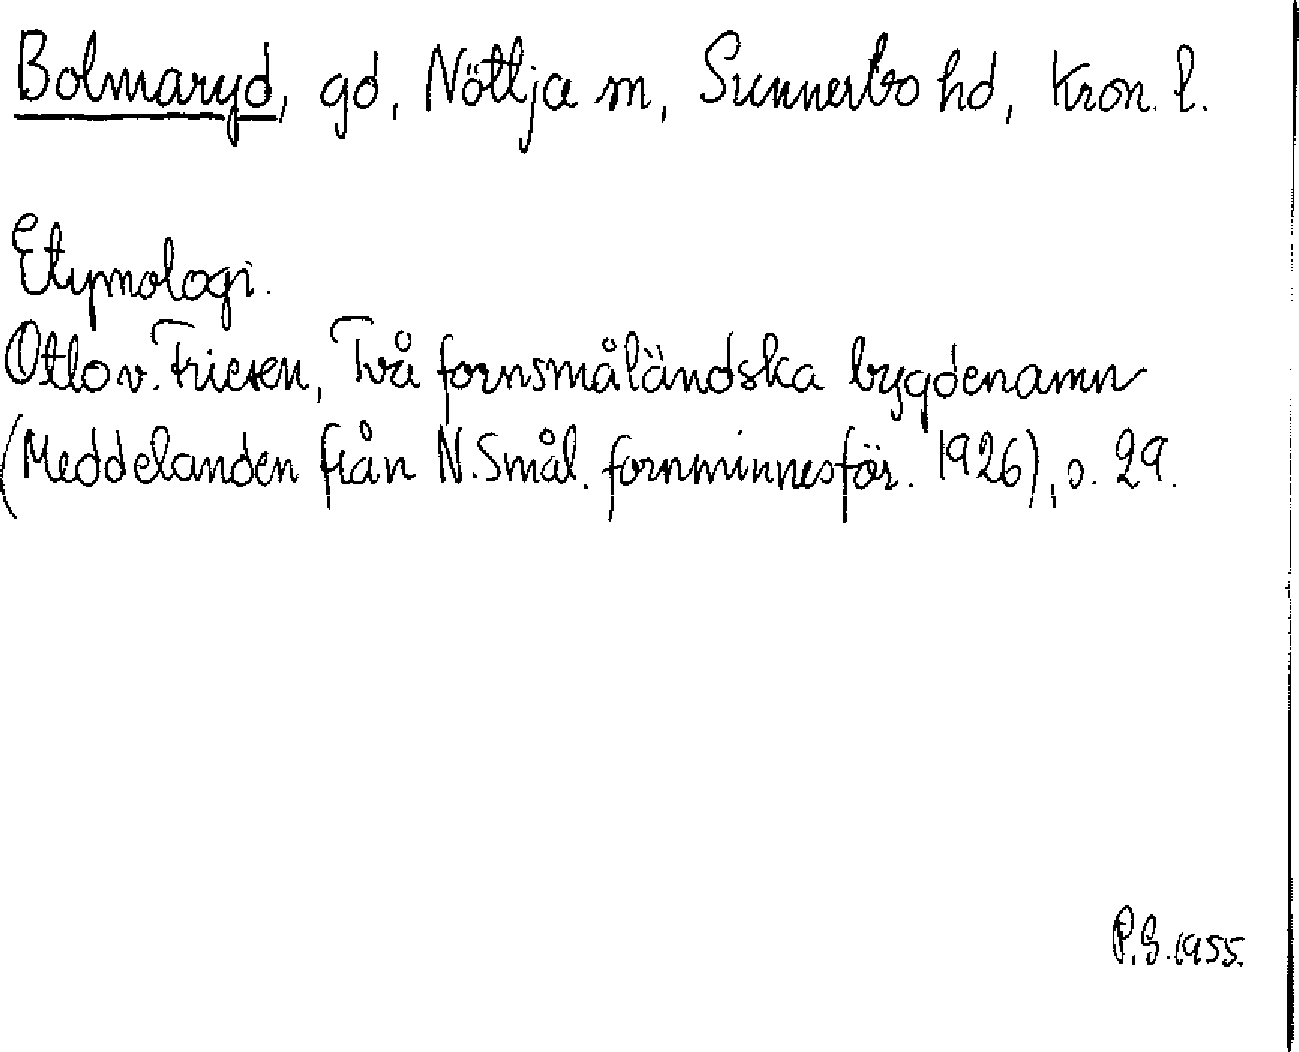 Bolmaryd, gd, Nöttja sn, Sunnerbo hd, Kron. l.
Etymologi.
Otto v. Friesen, Två fornsmåländska bygdenamn
(Meddelanden från N. Smål. fornminnesför. 1926), s. 29.
P.G. 1955.